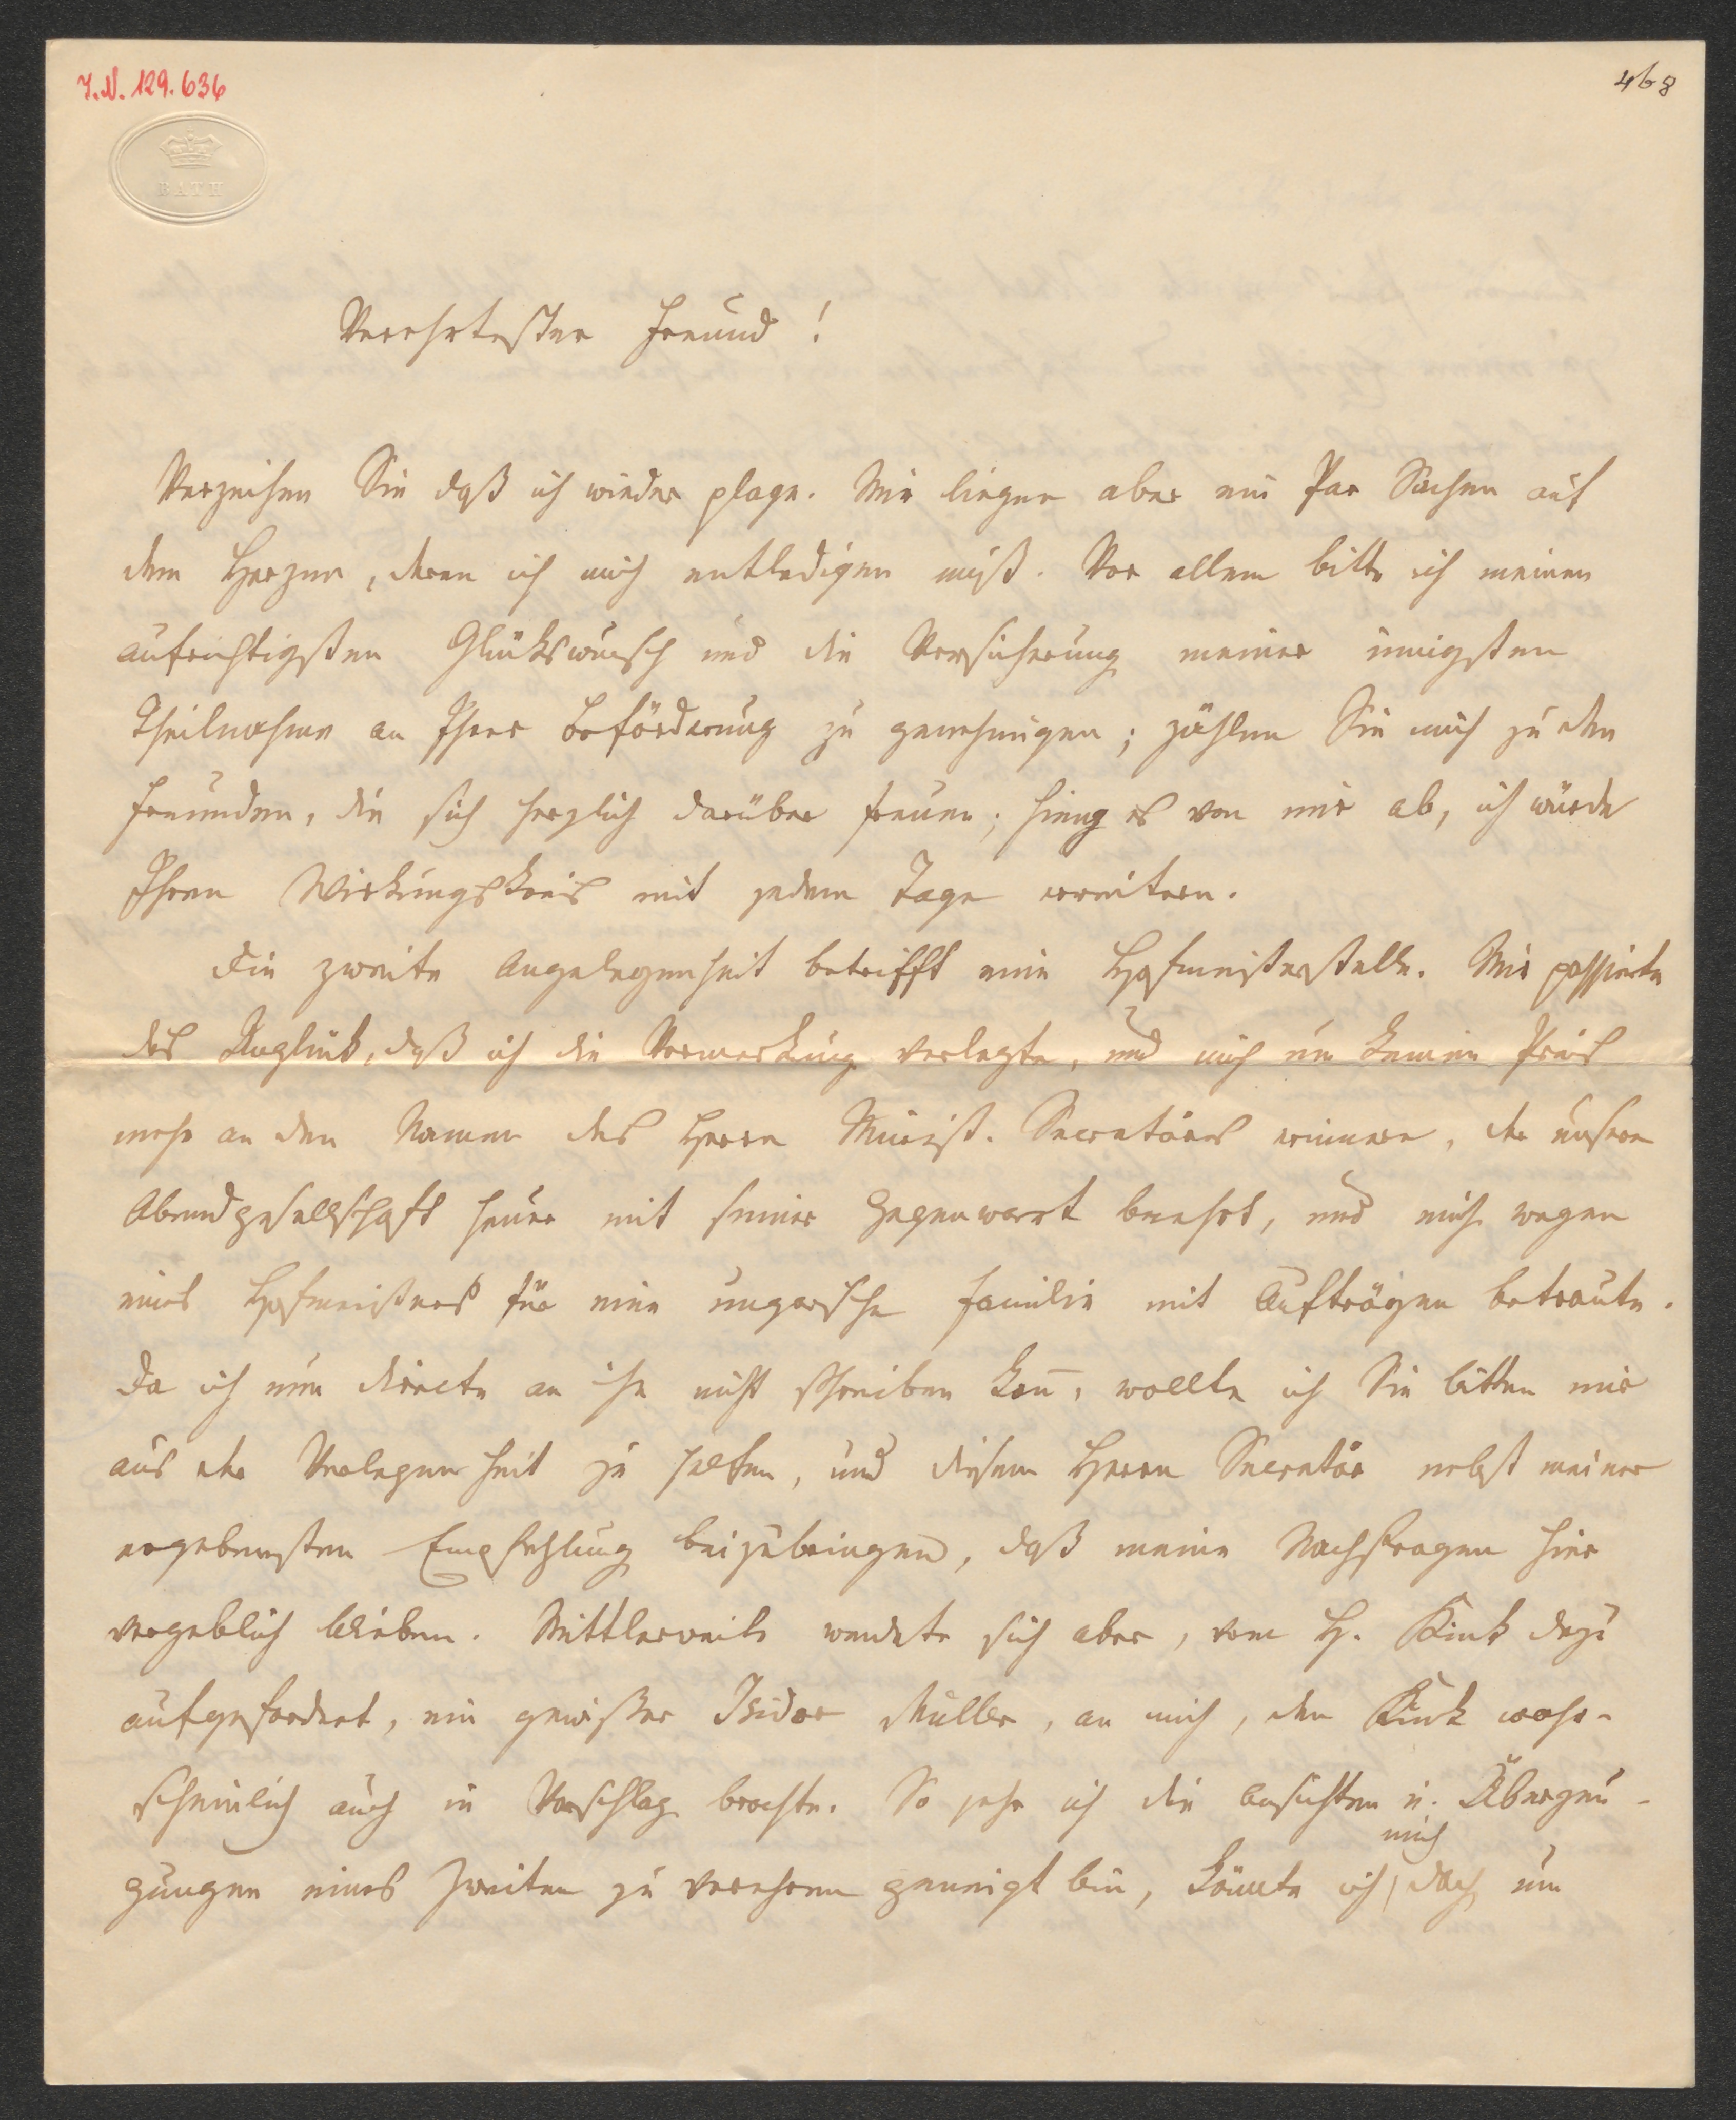 I.N. 129.636
468
BATH
Verehrtester Freund!
Verzeihen Sie daß ich wieder plage. Mir liegen aber ein Par Sachen auf
dem Herzen, deren ich mich entledigen muß. Vor allem bitte ich meinen
aufrichtigsten Glückswunsch und die Versicherung meiner innigsten
Theilnahme an Ihrer Beförderung zu genehmigen; zählen Sie mich zu den
Freunden, die sich herzlich darüber freuen; hieng es von mir ab, ich würde
Ihren Wirkungskreis mit jedem Tage erweitern.
Die zweite Angelegenheit betrifft eine Hofmeisterstelle. Mir passierte
das Unglück, daß ich die Vormerkung verlegte, und mich um keinen Preis
mehr an den Namen des Herrn Minist. Secretärs erinnere, der unsere
Abendgesellschaft heuer mit seiner Gegenwart beehrt, und mich wegen
eines Hofmeisters für eine ungarische Familie mit Aufträgen betraute.
Da ich nun directe an ihn nicht schreiben kan̅, wollte ich Sie bitten mir
aus der Verlegenheit zu helfen, und diesem Herrn Secretär nebst meiner
ergebensten Empfehlung beizubringen, daß meine Nachfragen hier
vergeblich blieben. Mittlerweile wendete sich aber, vom H. Kink dazu
aufgefordert, ein gewißer Isidor Müller, an mich, den Kink wahr-
scheinlich auch in Vorschlag brachte. So sehr ich die Ansichten u. Überzeu-
gungen eines Zweiten zu verehren geneigt bin, könnte ich mich doch um